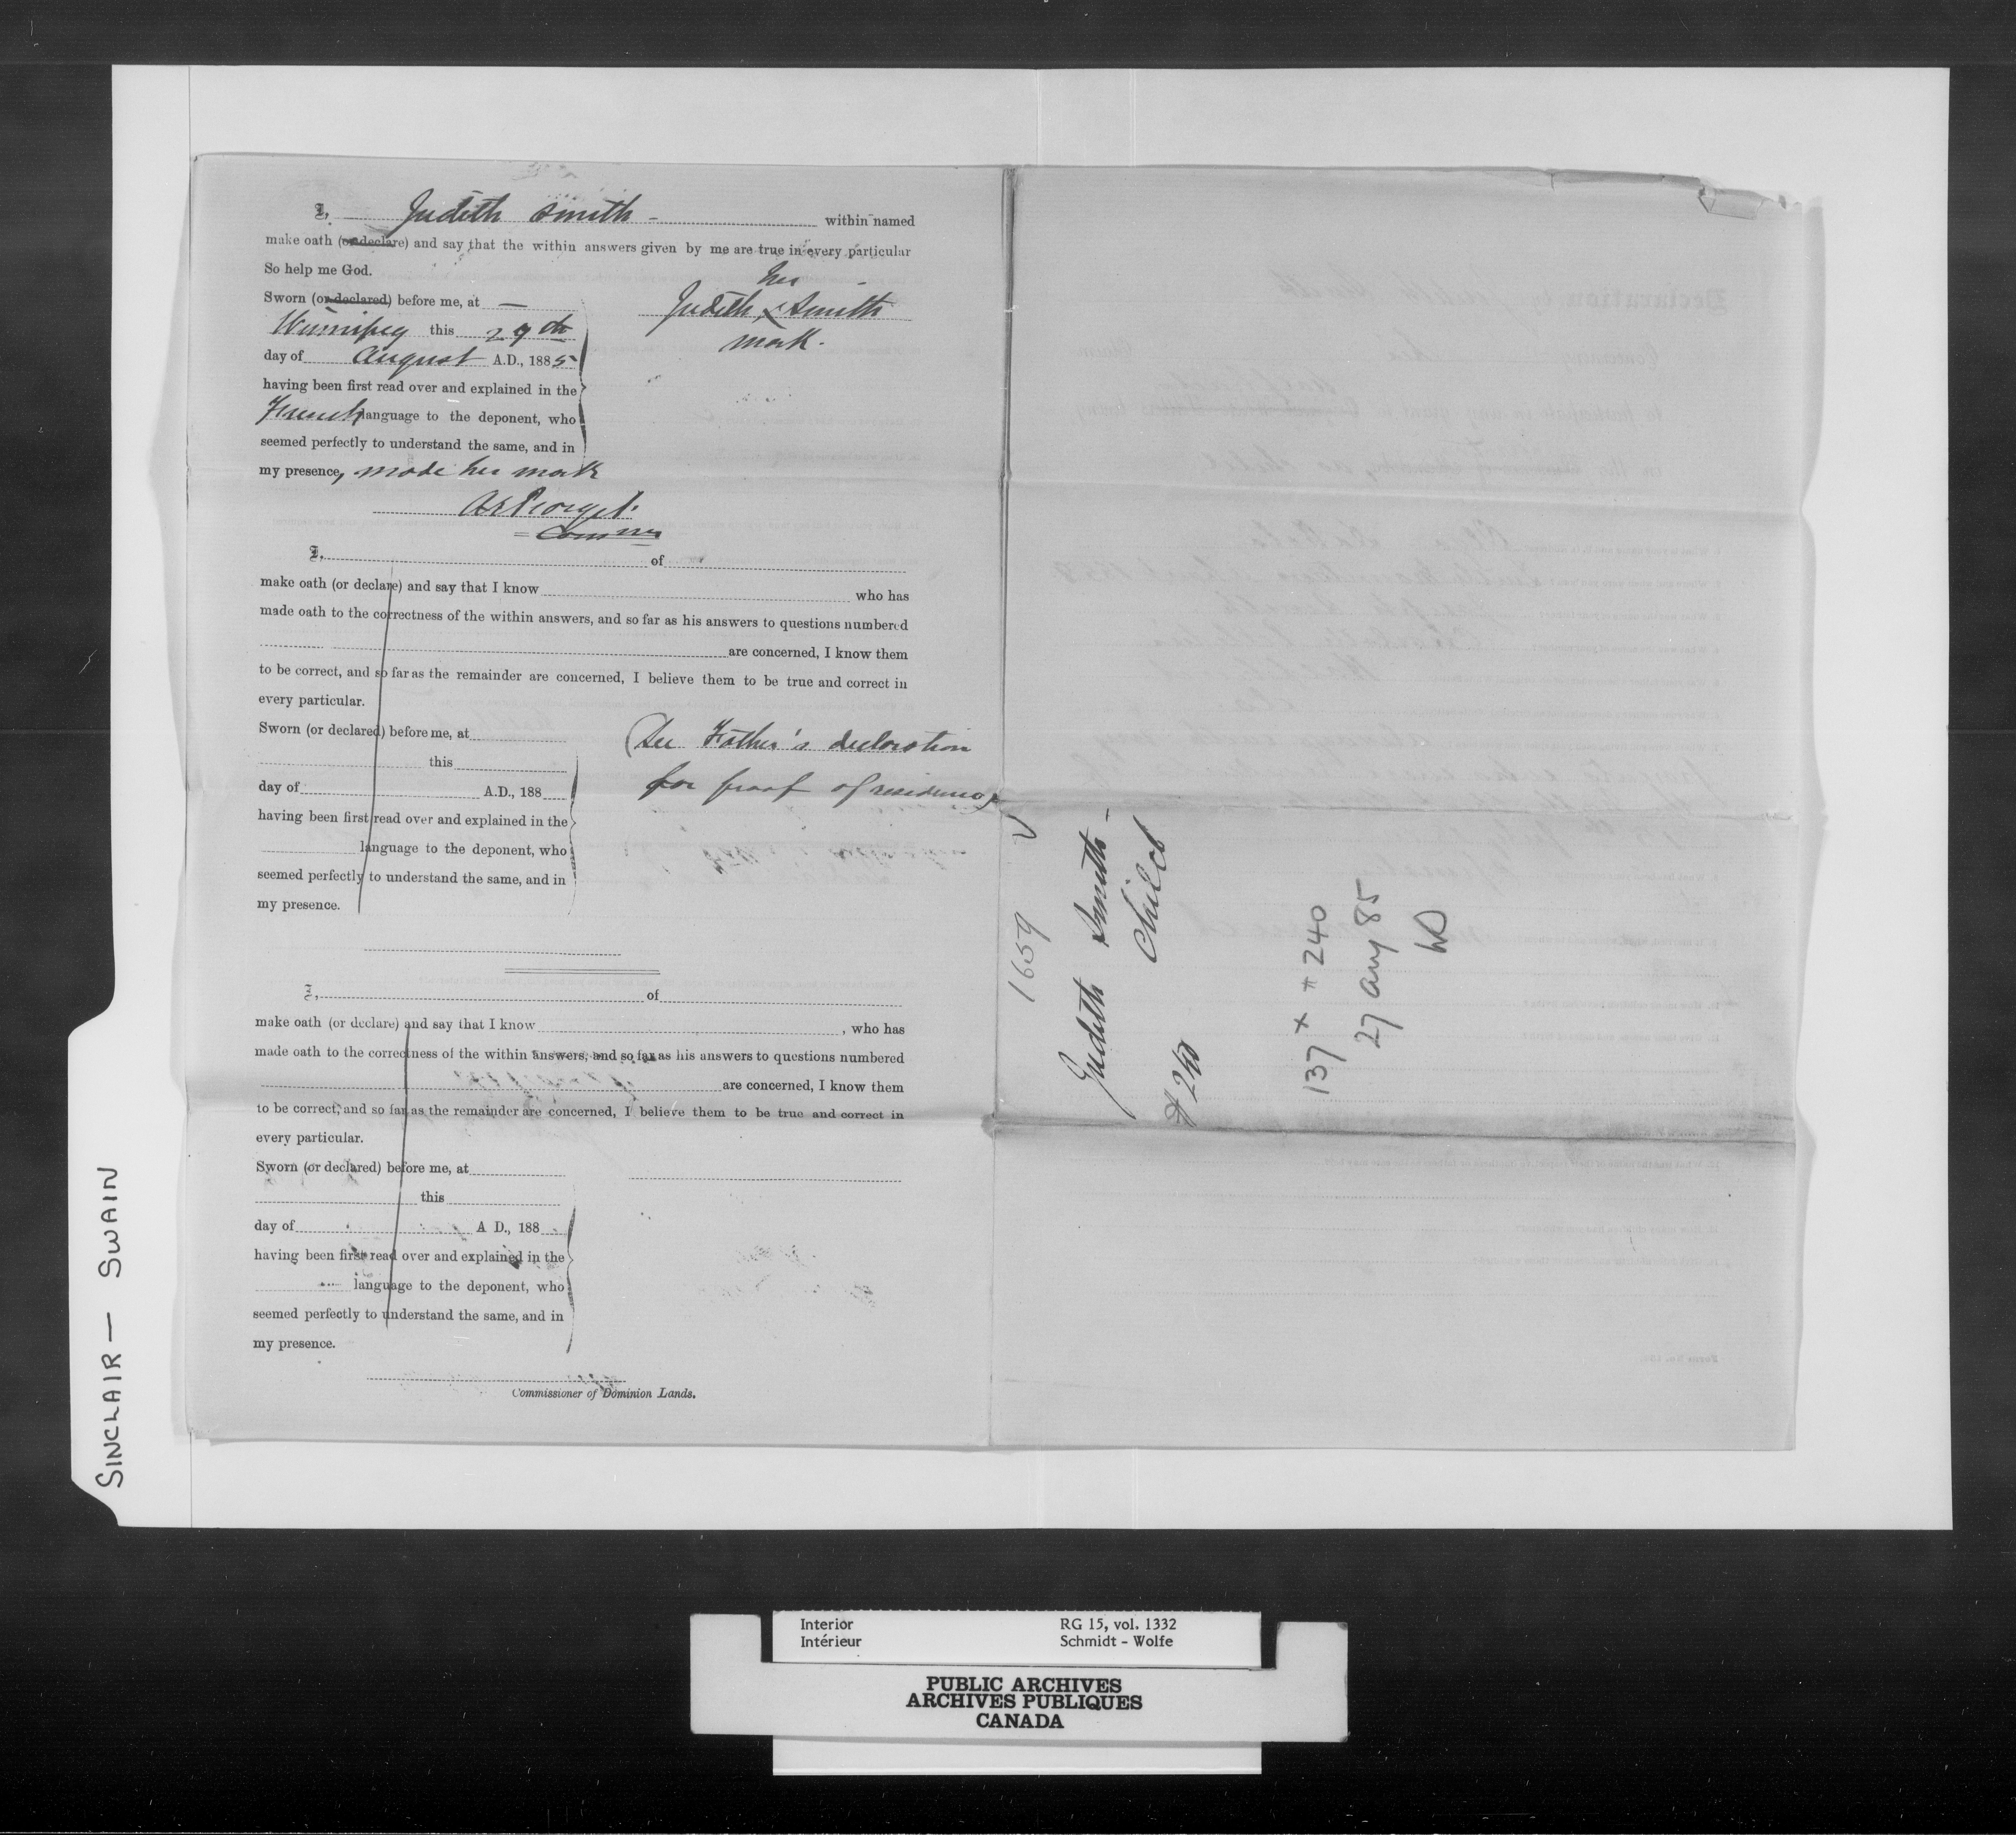 I, Judith Smith - within named
make oath (or declare) and say that the within answers given by me are true in every particular
So help me God.
Sworn (or declared) before me, at —
Winnipeg this 29th
day of August A.D., 1885
having been first read over and explained in the
French language to the deponent, who
seemed perfectly to understand the same, and in
my presence, made her mark
her
Judith x Smith
mark.
Commr
I, of
make oath (or declare) and say that I know who has
made oath to the correctness of the within answers, and so far as his answers to questions numbered
are concerned, I know them
to be correct, and so far as the remainder are concerned, I believe them to be true and correct in
every particular.
Sworn (or declared) before me, at
this
day of A.D., 188
having been first read over and explained in the
language to the deponent, who
seemed perfectly to understand the same, and in
my presence.
(See Father's declaration
for proof of residence)
I, of
make oath (or declare) and say that I know , who has
made oath to the correctness of the within answers, and so far as his answers to questions numbered
are concerned, I know them
to be correct, and so far as the remainder are concerned, I believe them to be true and correct in
every particular.
Sworn (or declared) before me, at
this
day of A D., 188
having been first read over and explained in the
language to the deponent, who
seemed perfectly to understand the same, and in
my presence.
Commissioner of Dominion Lands.
1659
Judith Smith -
Child
137 x # 240
27 aug 85
SINCLAIR — SWAIN
Interior RG 15, vol. 1332
Intérieur Schmidt - Wolfe
PUBLIC ARCHIVES
ARCHIVES PUBLIQUES
CANADA